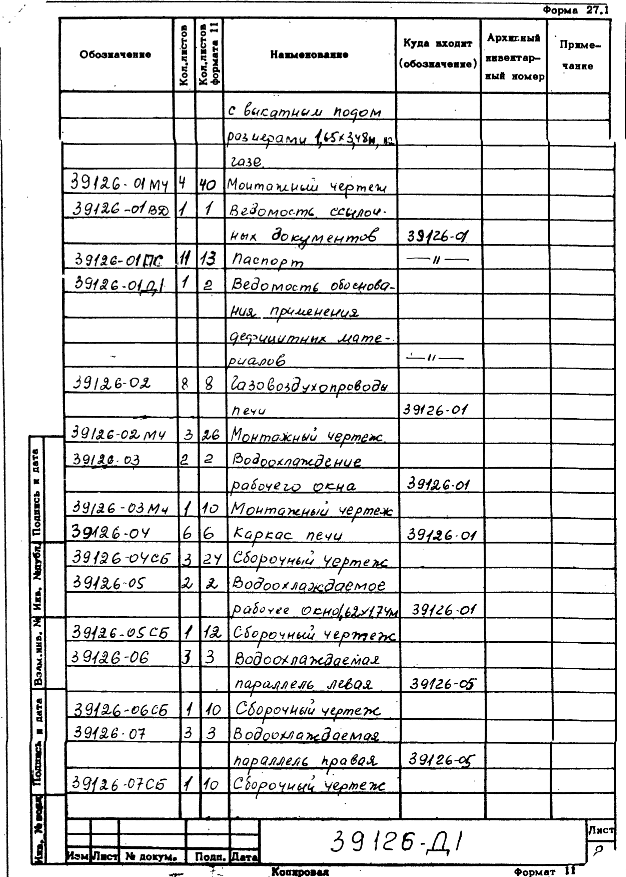 Форма 27.1
Обозначение Кол.листов Кол.листов формата 11 Наименование Куда входит (обозначение) Архивный инвентарный номер Примечание
с выкатным подом
размерами 1,65×3,48м, на
газе.
39126-01МЧ 4 40 Монтажный чертеж
39126-01ВД 1 1 Ведомость ссылоч-
ных документов 39126-01
39126-01ПС 11 13 Паспорт —"—
39126-01Д1 1 2 Ведомость обоснова-
ния применения
дефицитных мате-
риалов —"—
39126-02 8 8 Газовоздухопроводы
печи 39126-01
39126-02МЧ 3 26 Монтажный чертеж
39126-03 2 2 Водоохлаждение
рабочего окна 39126-01
39126-03МЧ 1 10 Монтажный чертеж
39126-04 6 6 Каркас печи 39126-01
39126-04СБ 3 24 Сборочный чертеж
39126-05 2 2 Водоохлаждаемое
рабочее окно 1,62×1,74м 39126-01
39126-05СБ 1 12 Сборочный чертеж
39126-06 3 3 Водоохлаждаемая
параллель левая 39126-05
39126-06СБ 1 10 Сборочный чертеж
39126-07 3 3 Водоохлаждаемая
параллель правая 39126-05
39126-07СБ 1 10 Сборочный чертеж
Подпись и дата
Инв. №дубл.
Взам.инв. №
Подпись и дата
Инв. №подл.
39126-Д1
Лист
Изм Лист № докум. Подп. Дата
Копировал
Формат 11